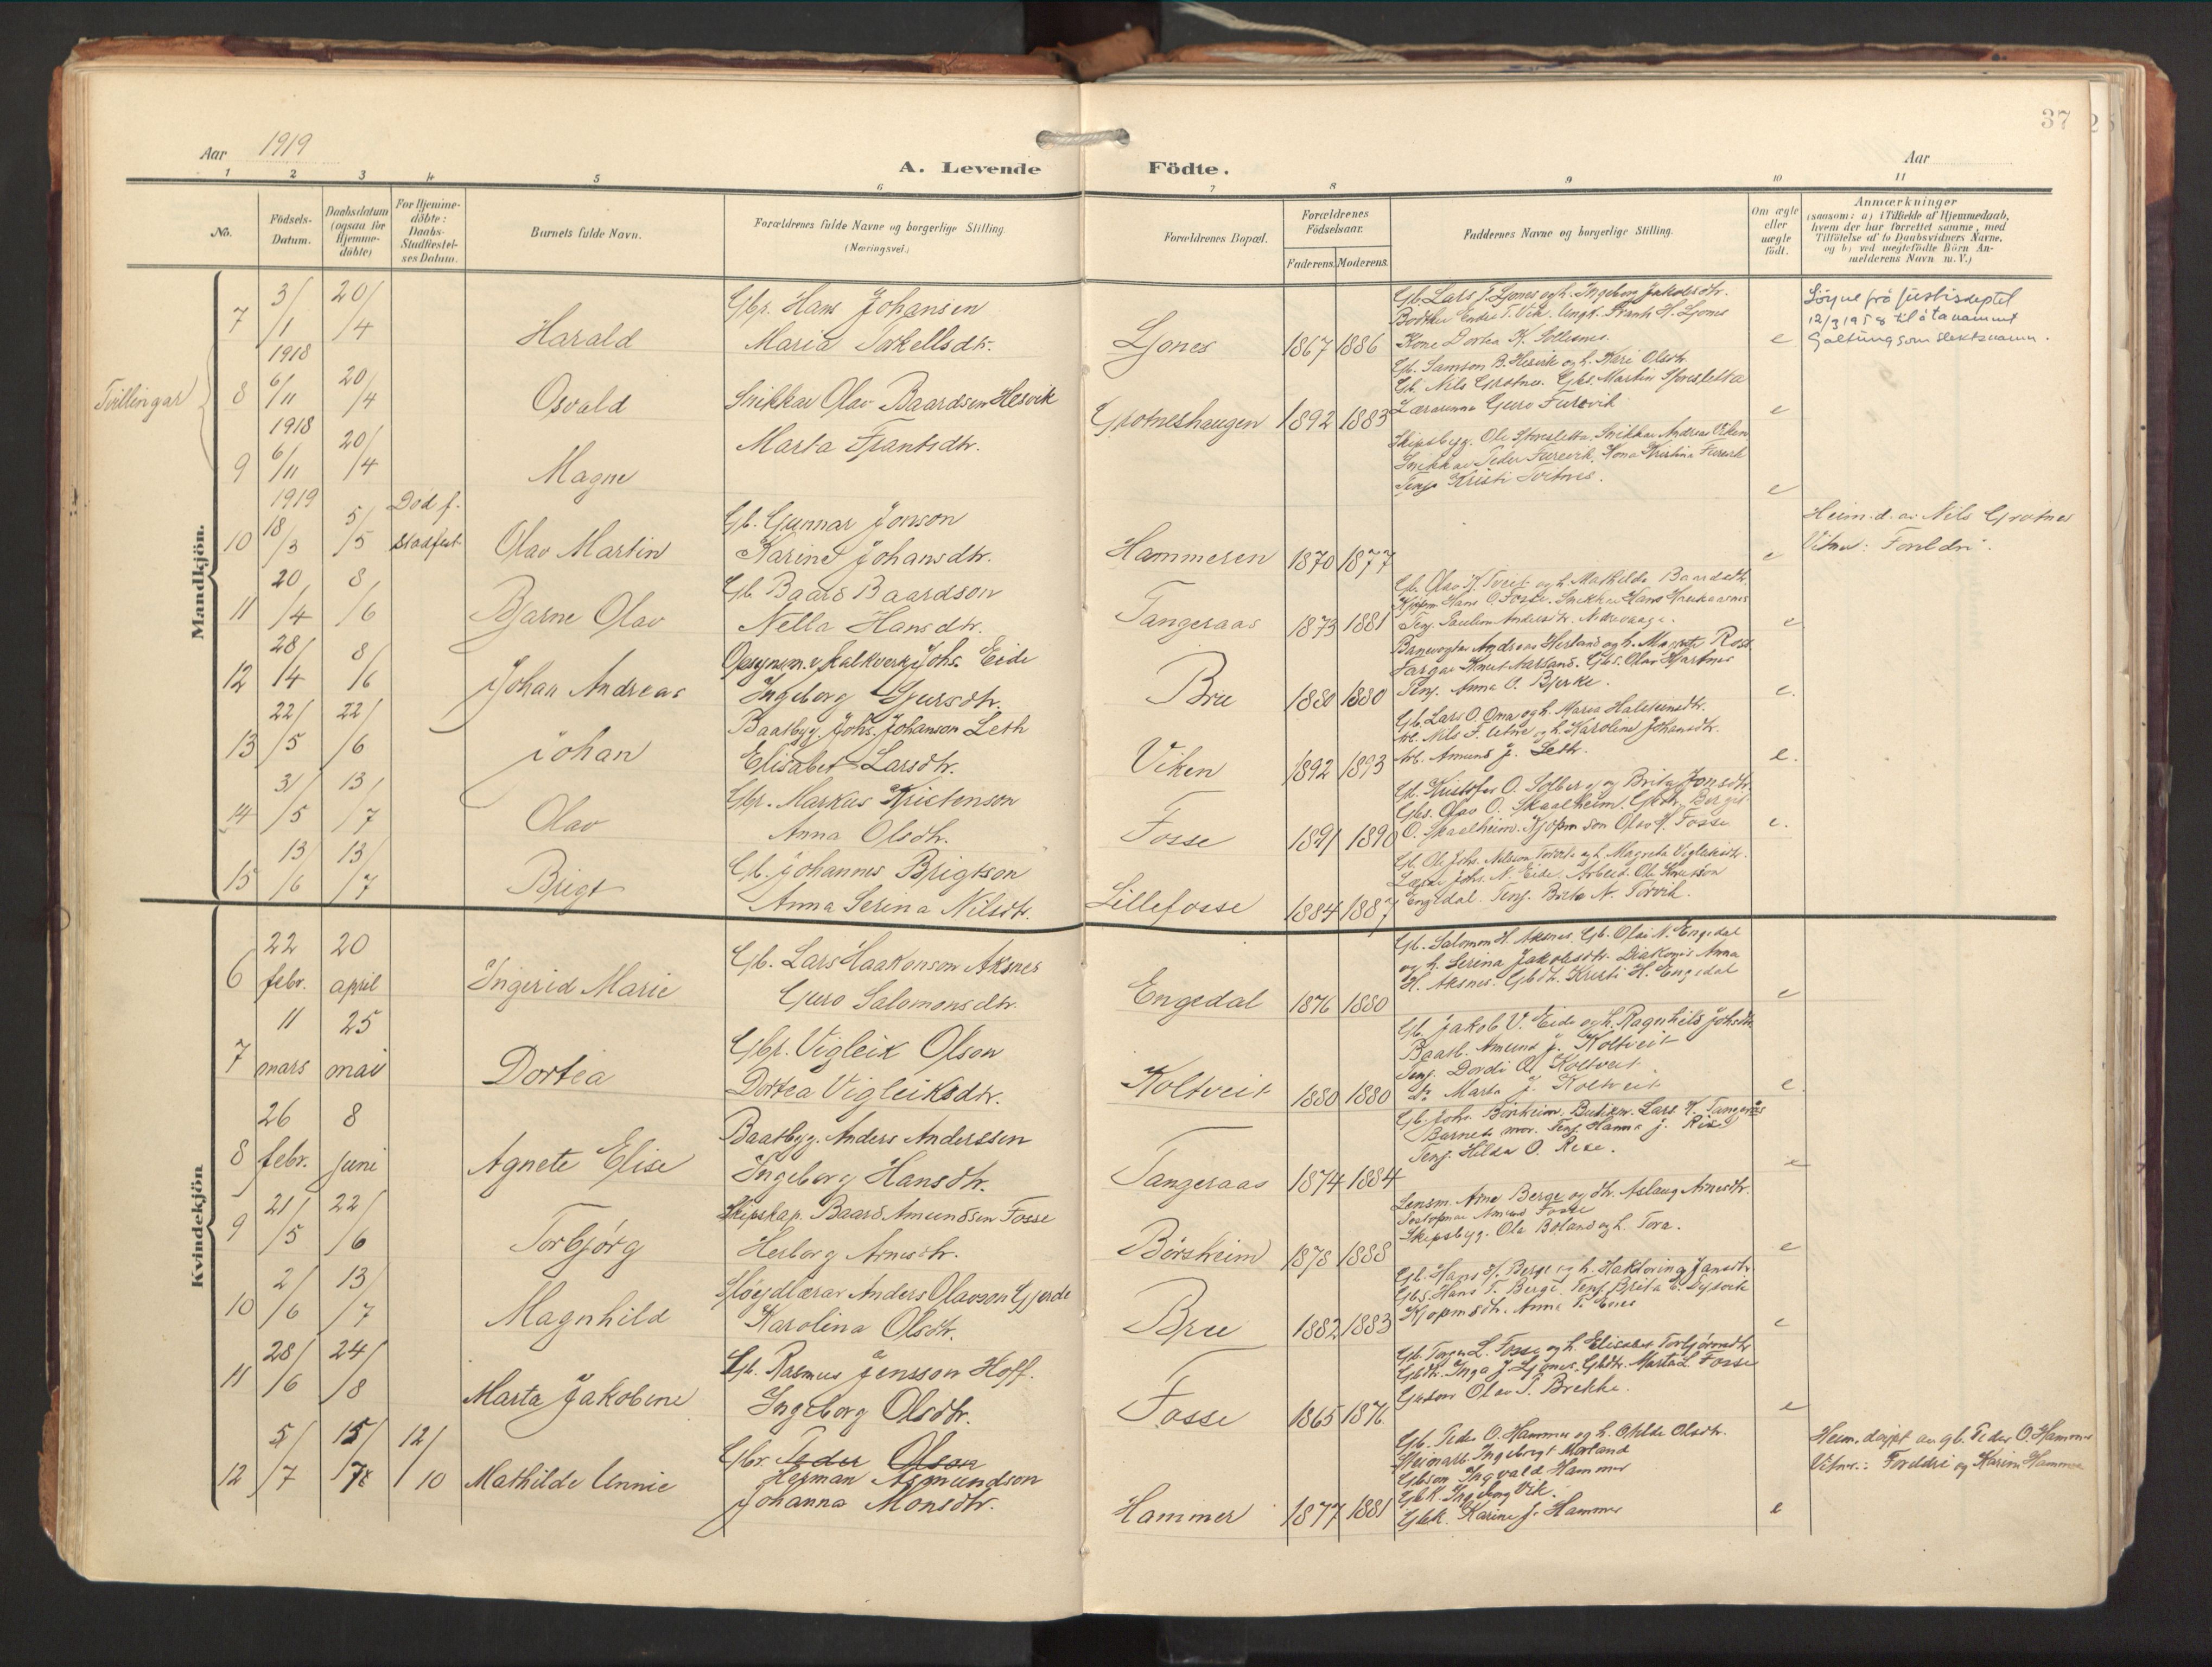 37
Aar 1919
A. Levende Födte.
Aar
1 2 3 4 5 6 7 8 9 10 11
No.
Födsels-Datum.
Daabsdatum (ogsaa for Hjemme-döbte)
For Hjemme-döbte: Daabs-Stadfæstel-ses Datum.
Barnets fulde Navn.
Forældrenes fulde Navne og borgerlige Stilling.
(Næringsvei.)
Forældrenes Bopæl.
Forældrenes Födselsaar.
Faderens. Moderens.
Faddernes Navne og borgerlige Stilling.
Om ægte eller uægte födt.
Anmærkninger
(saasom: a) i Tilfælde af Hjemmedaab,
hvem der har forrettet samme, med
Tilföielse af to Daabsvidners Navne,
og b) ved uegtefödte Börn An-
melderens Navn m. V.)
Mandkjön.
7 3/1 20/4 Harald
Gbr. Hans Johansen
Maria Torkellsdtr.
Ljones 1867 1886
Gb. Lars J. Ljones og h. Ingeborg Jakobsdtr.
Kone Dortea K. Solesnes
e
Löyve frå Justisdeptet
12/3 1958 til å ta namnet
Galtung som slektsnamn.
Tvillingar
8 1918 6/11 20/4 Osvald
Snikkar Olav Baardsen Hesvik
Marta Frantsdtr.
Grotneshaugen 1892 1883
Gb. Samson B. Hesvik og h. Kari Olsdtr.
Gb. Nils Grotnes. Gbs. Martin Spresletta
Lærarinna Guro Furevik
e
9 1918 6/11 20/4 Magne
Skipsbyg. Ole Spresletta. Snikkar Andreas Viken
Snikkar Peder Furevik. Kona Kristina Furevik
Tenj. Kristi Tvitnes.
e
10 1919 18/3 5/5 Död f. stadfest. Olav Martin
Gb. Gunnar Jonson
Karine Johansdtr.
Hammeren 1870 1877
e
Heim.d. av Nils Grotnes
Vitner: Foreldri.
11 20/4 8/6 Bjarne Olav
Gb. Baard Baardson
Nella Hansdtr.
Tangeraas 1873 1881
Gb. Olav K. Tveit og h. Mathilda Baardsdtr.
Kjöpm. Hans O. Fosse. Snikkar Hans
e
12 28/4 8/6 Johan Andreas
Opsynsm. v. kalkverk Johs. Eide
Ingeborg Gjursdtr.
Bru 1880 1880
Banevogter Andreas Hesland og h. Margrete Ross
Fargar Knut Aarland. Gbs. Olav Hjartnes
Tenj. Anna O. Bjerke.
e.
13 22/5 22/6 Johan
Baatbyg. Johs. Johanson Leth
Elisabet Larsdtr.
Viken 1892 1893
Gb. Lars O. Oma og h. Maria Halsteinsdtr.
Arb. Nils F. Utne og h. Karoline Johansdtr.
Arb. Amund J. Leth.
e.
14 31/5 13/7 Olav
Gbr. Markus Kristenson
Anna Olsdtr.
Fosse 1891 1890
Gb. Kristofer O. Solberg og Brita Jonsdtr.
Gbs. Olav O. Skaalheim. Gbdtr. Bergit
O. Skaalheim. Kjöpm.son Olav H. Fosse
e.
15 13/6 13/7 Brigt
Gb. Johannes Brigtson
Anna Serina Nilsdtr.
Lillefosse 1884 1887
Gb. Ole Johs. Nilsson Torvik og h. Magreta Vigleiksdtr.
Johs. N. Eide. Arbeid. Ole Knutson
Engedal. Tenj. Brita N. Torvik.
Kvindekjön
6 22 febr. 20 april Ingerid Marie
Gb. Lars Haakonson Aksnes
Guro Salomonsdtr.
Engedal 1876 1880
Gb. Salomon H. Aksnes. Gb. Olai N. Engedal
og h. Serina Jakobsdtr. Diakonis Anna
H. Aksnes. Gbdtr. Kristi H. Engedal
e
7 11 mars 25 mai Dortea
Gbr. Vigleik Olson
Dortea Vigleiksdtr.
Koltveit 1880 1880
Gb. Jakob V. Eide og h. Ragnhild Johsdtr.
Baatb. Amund J. Koltveit
Tenj. Dordi O. Koltveit
Do Marta J. Koltveit
e.
8 26 febr. 8 juni Agnete Elise
Baatbyg. Anders Anderssen
Ingeborg Hansdtr.
Tangeraas 1874 1884
Gb. Johs. Börsheim. Butikm. Lars K. Tangerås
Barnets mor. Tenj. Hanna J. Rixe
Tenj. Hilda O. Rexe.
e
9 21/5 22/6 Torbjörg
Skipskap. Baard Amundsen Fosse
Herborg Arnesdtr.
Börsheim 1878 1888
Lensm. Arne Berge og dtr. Aslaug Arnesdtr.
Postopnar Amund Fosse
Skipsbyg. Ola Boland og h. Tora.
e
10 2/6 13/7 Magnhild
Slöydlærar Anders Olavson Gjerde
Karolina Olsdtr.
Bru 1882 1883
Gb. Hans H. Berge og h. Haktoring Jansdtr.
Gbs. Hans T. Berge. Tenj. Brita E. Dysvik
Kjöpmsdtr. Anna T. Enes
e
11 28/6 24/8 Marta Jakobine
Gb. Rasmus Jensson Hoff.
Ingeborg Olsdtr.
Fosse 1865 1876
Gb. Torger L. Fosse og h. Elisabet Torbjörnsdtr.
Gbdtr. Inga J. Ljones. Gbdtr. Marta L. Fosse
Gutson Olav T. Brekke.
e
12 5/7 15/7 12/10 Mathilde Unnie
Gbr. Peder Olson
Herman Asmundson
Johanna Monsdtr.
Hammer 1877 1881
Gb. Peder O. Hammer og h. Ohlde Olsdtr.
Ingebregt Morland
Gbson Ingvald Hammer
Gbk. Ingeborg Vik.
Gbk. Karine J. Hammer
e
Heim. döypt av gb. Peder O. Hammer
Vitner: Foreldri og Karine Hammer